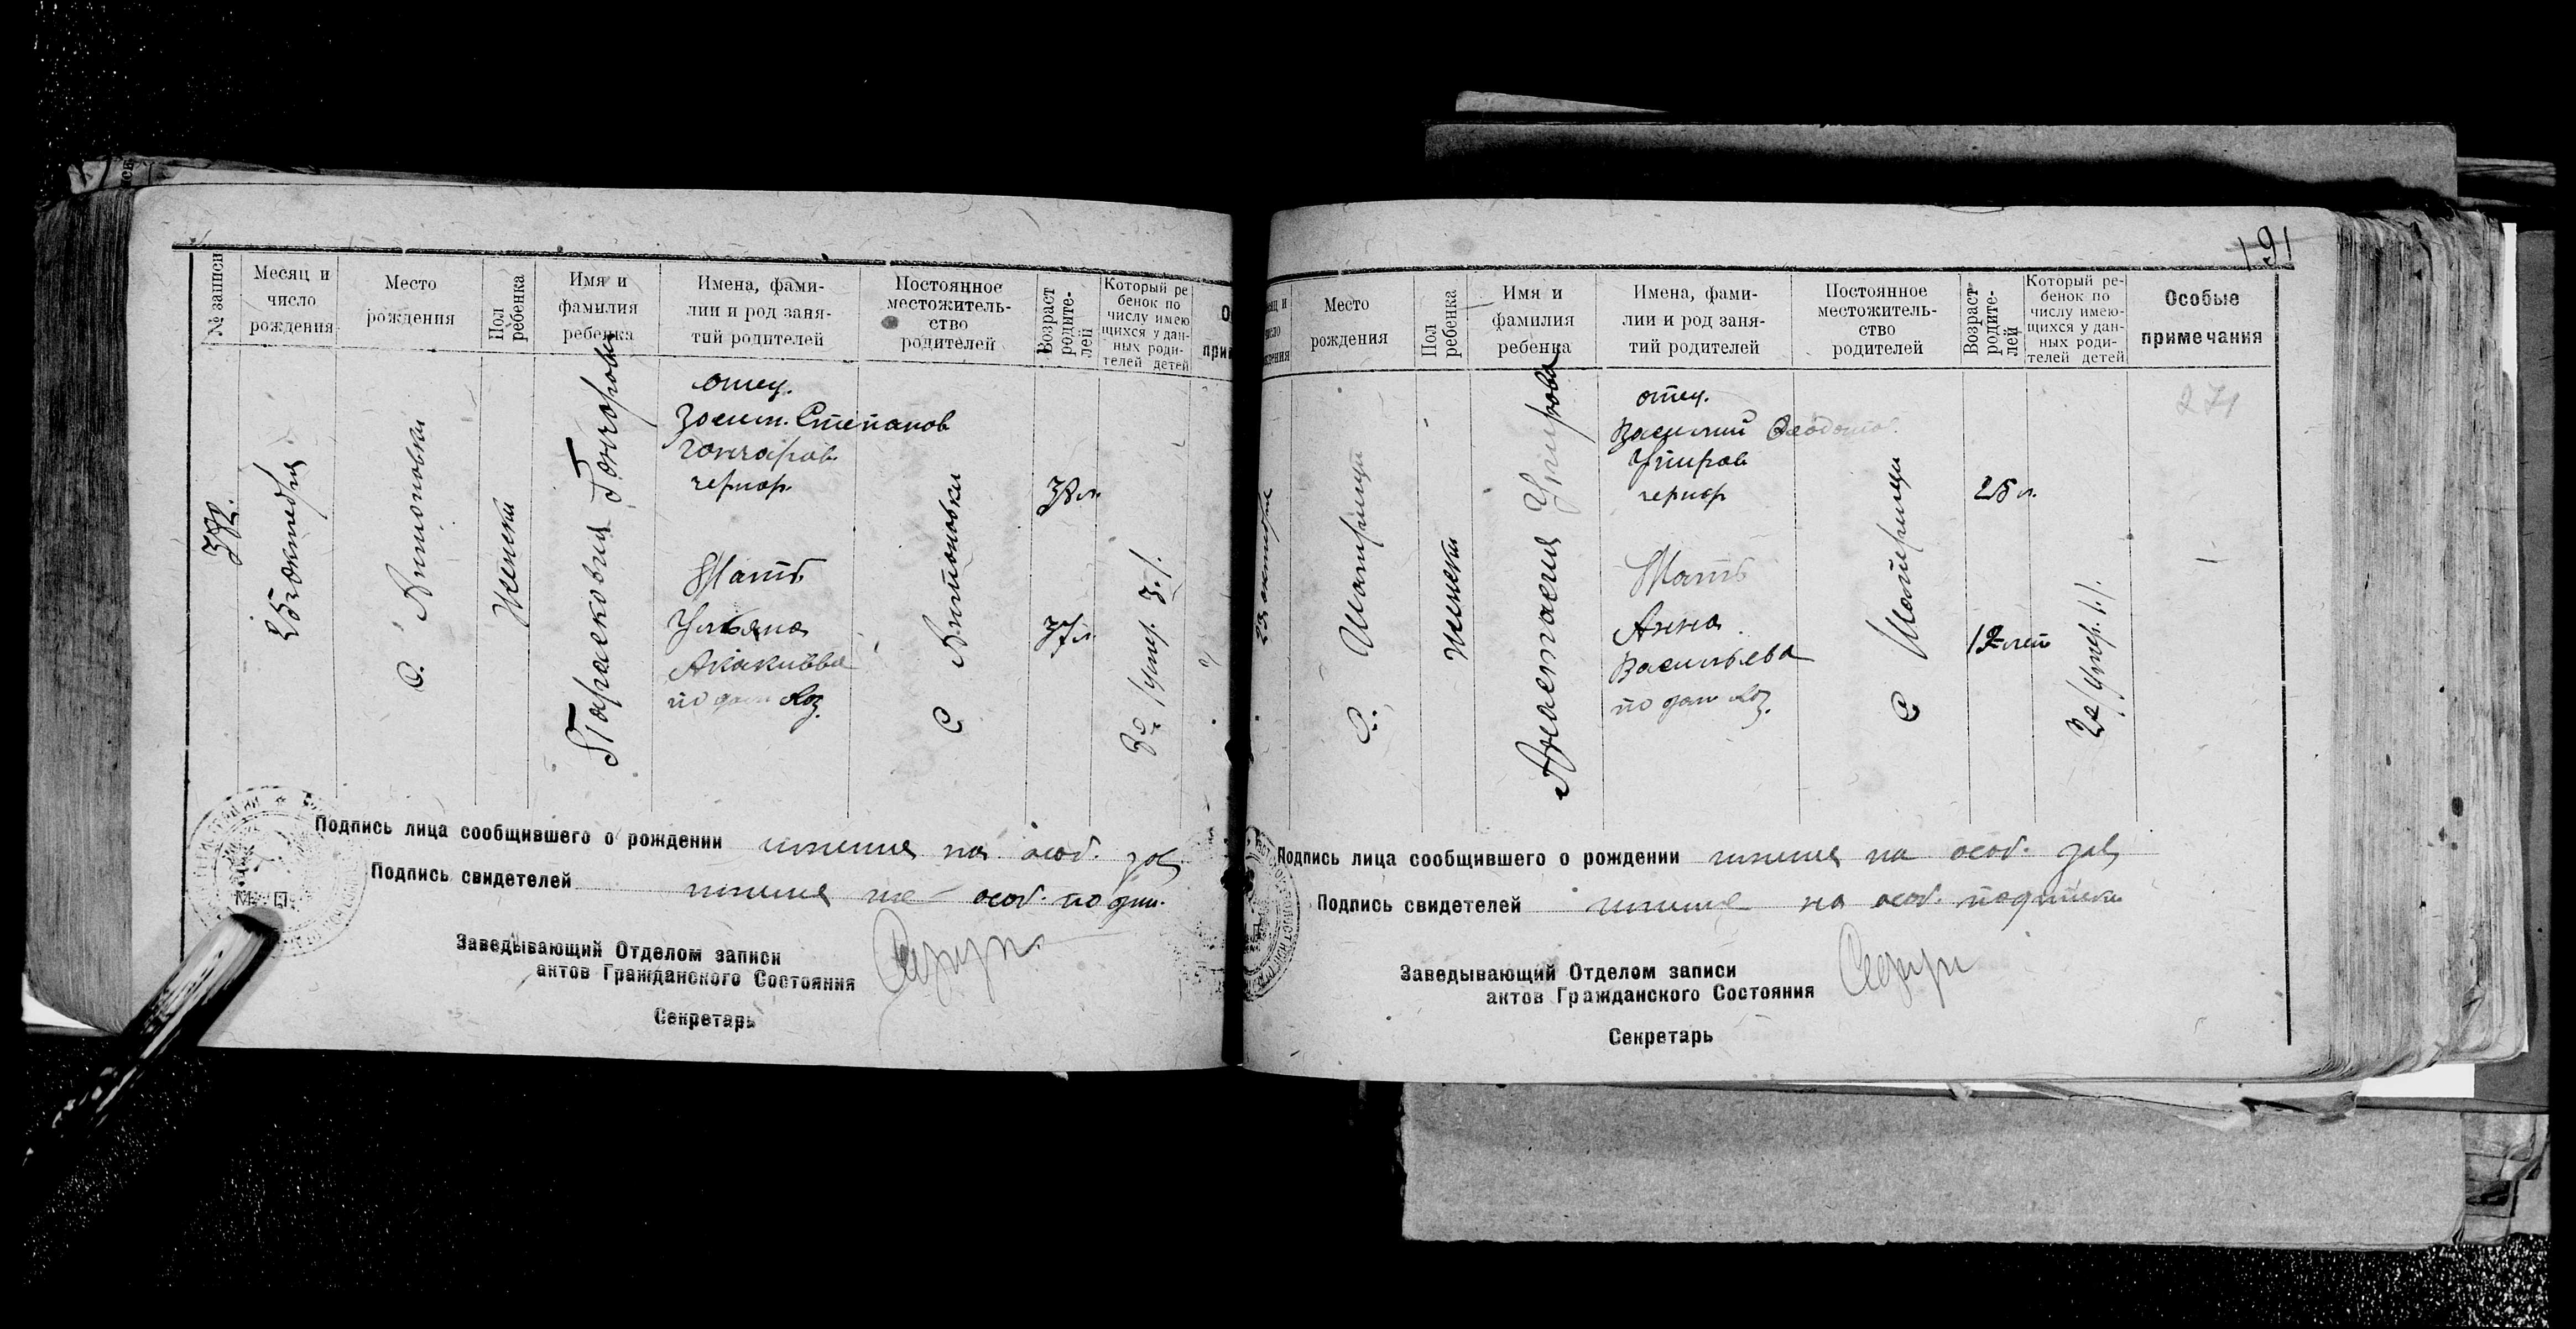 № записи
Месяц и
число
рождения
Место
рождения
Пол
ребенка
Имя и
фамилия
ребенка
Имена, фами-
лии и род заня-
тий родителей
Постоянное
местожитель-
ство
родителей
Возраст
родите-
лей
Который ре
бенок по
числу имею
щихся у дан-
ных роди-
телей детей
372.
25 октября
с. Антоновки
Женски
Парасковия Гончарова
отец.
Зосим. Степанов
Гончаров
чернор.
Мать
Ульяна
Акакиева
по дом хоз.
с Антоновки
38 л.
37 л.
8е /умер. 3./
Подпись лица сообщившего о рождении
на особ.
Подпись свидетелей
особ.
М. П.
Заведывающий Отделом записи
актов Гражданского Состояния
Секретарь
191
Место
рождения
Пол
ребенка
Имя и
фамилия
ребенка
Имена, фами-
лии и род заня-
тий родителей
Постоянное
местожитель-
ство
родителей
Возраст
родите-
лей
Который ре-
бенок по
числу имею-
щихся у дан-
ных роди-
телей детей
Особые
примечания
271
октября
с.
Женски
Анастасия
отец.
Василий
чернор
Мать
Анна
Васильева
по дом хоз.
с
25 л.
лет
2е /умер. 1./
Подпись лица сообщившего о рождении
на особ.
Подпись свидетелей
на особ. подписи
Заведывающий Отделом записи
актов Гражданского Состояния
Секретарь